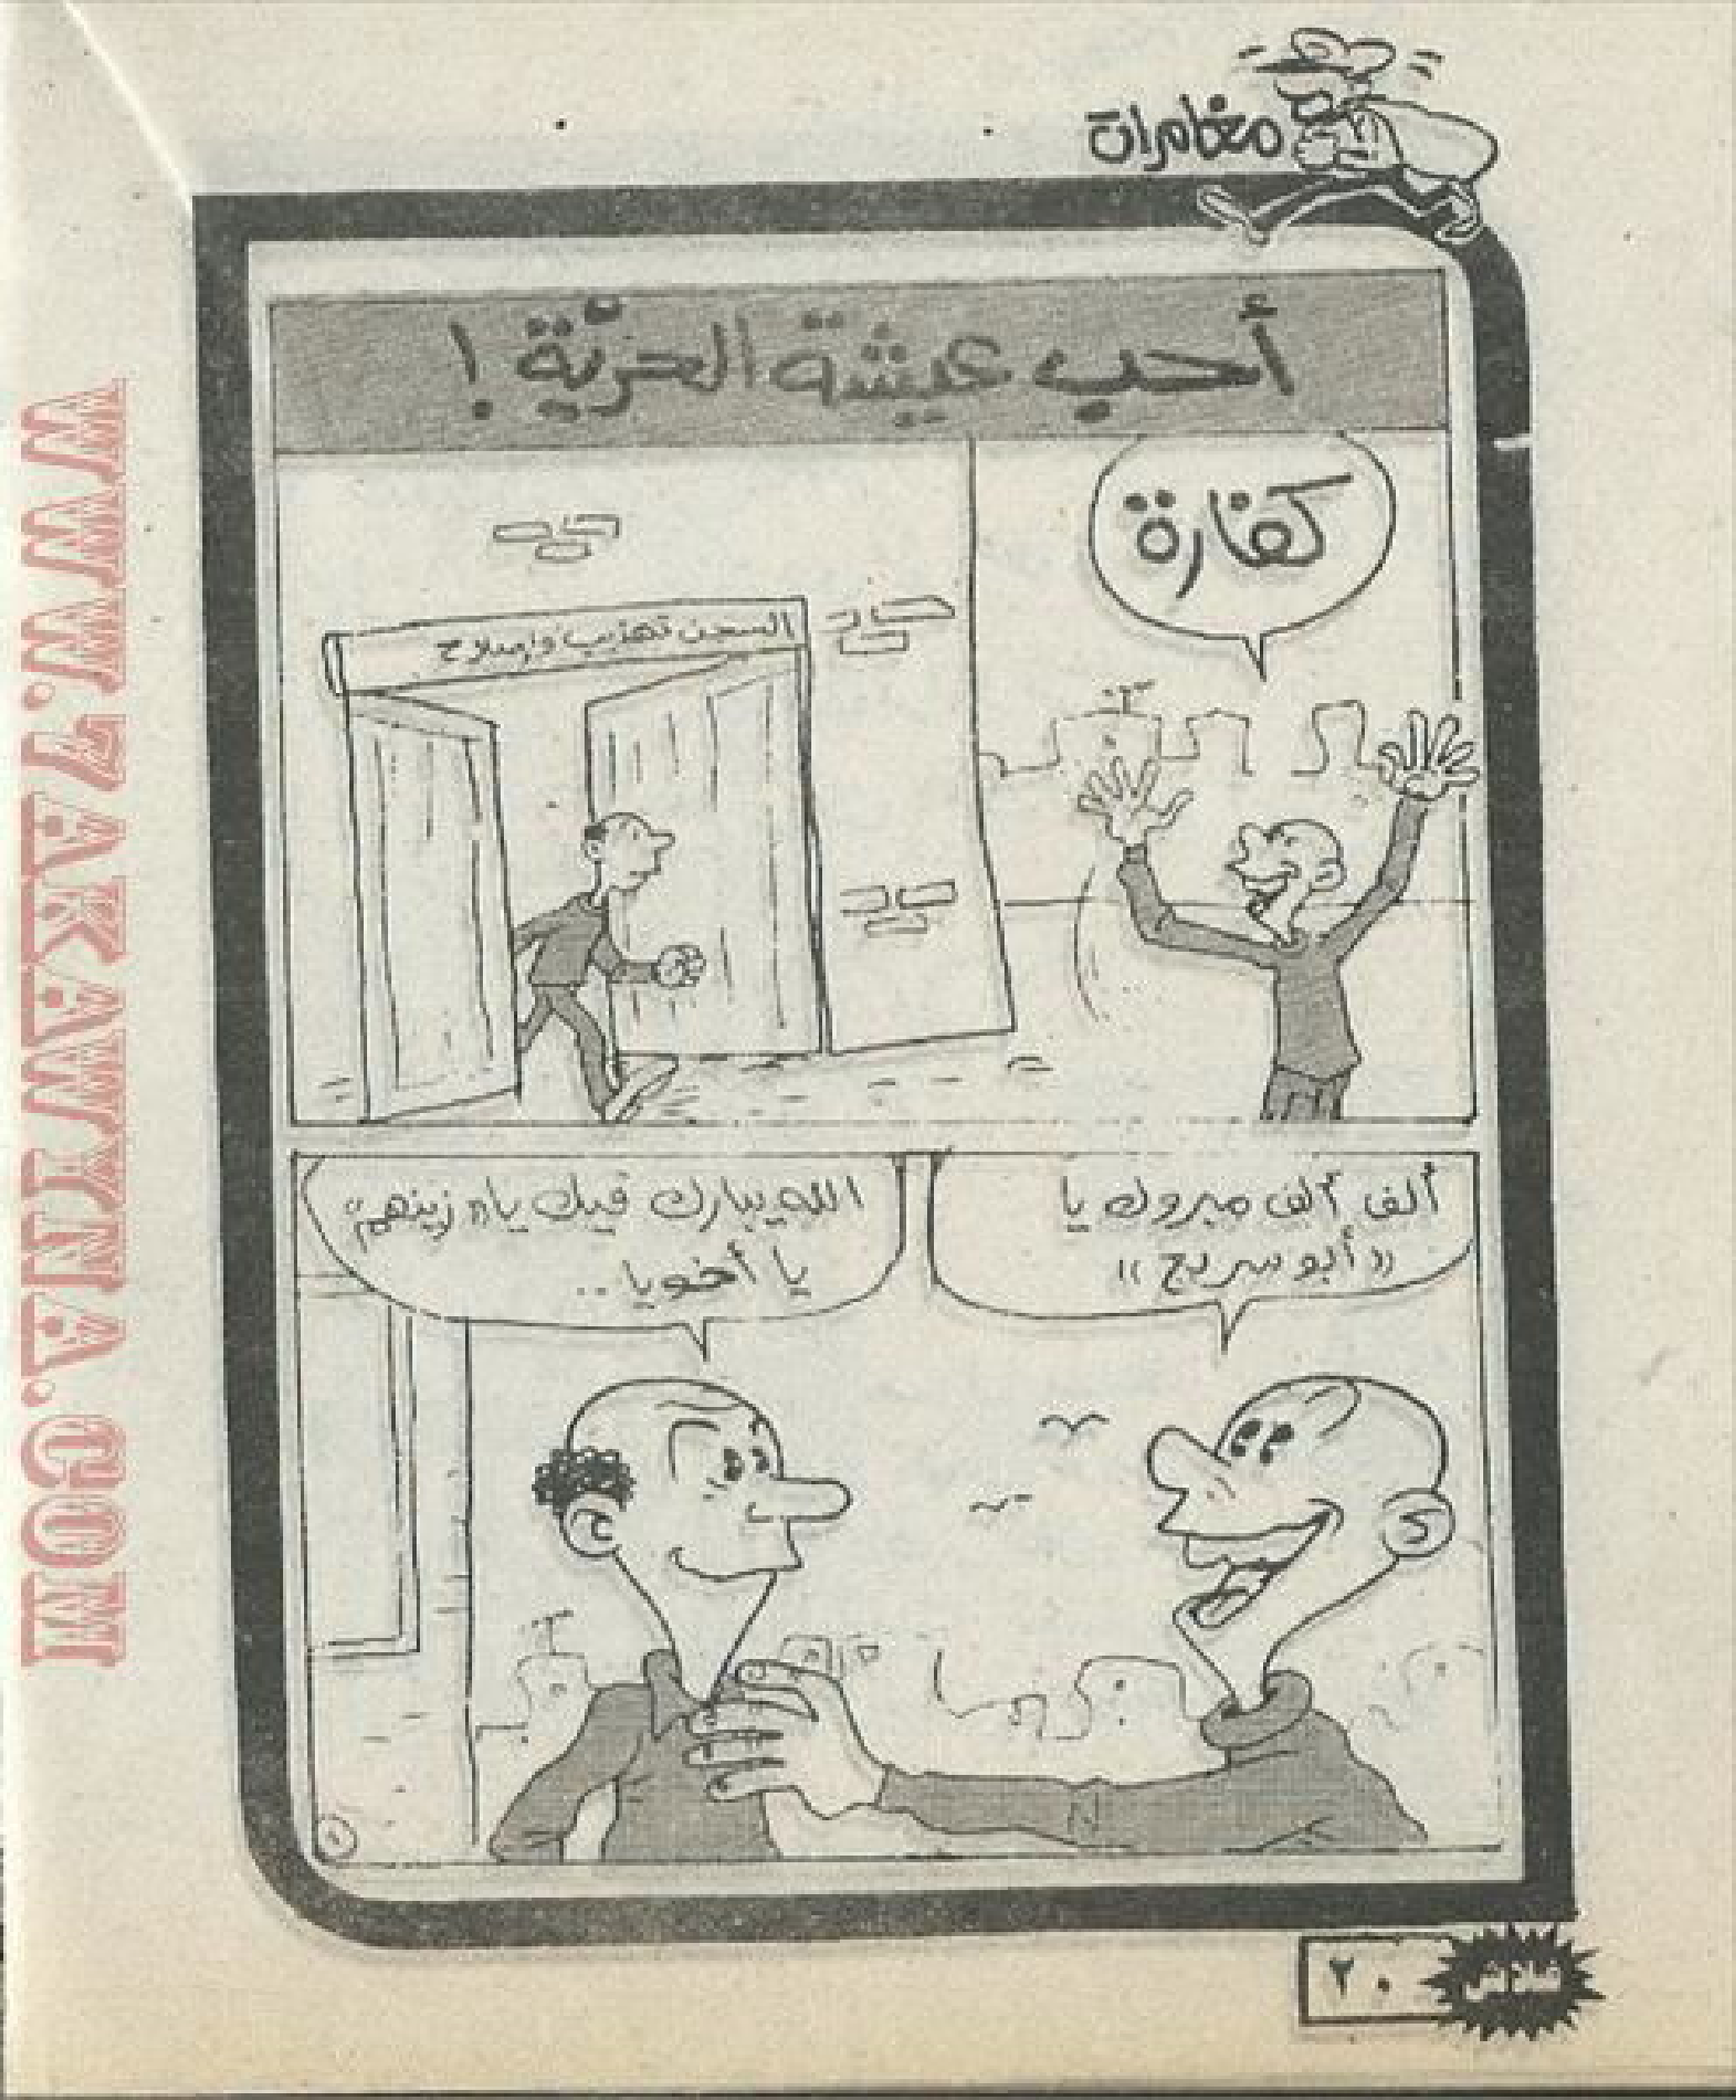 مغامرات
أحب عيشة الحرّية !
كفارة
السجن تهذيب وإصلاح
ألف ألف مبروك يا
«أبو سريع»
الله يبارك فيك يا «زينهم»
يا أخويا ..
٢٠
فلاش
WWW.7AKAWINA.COM